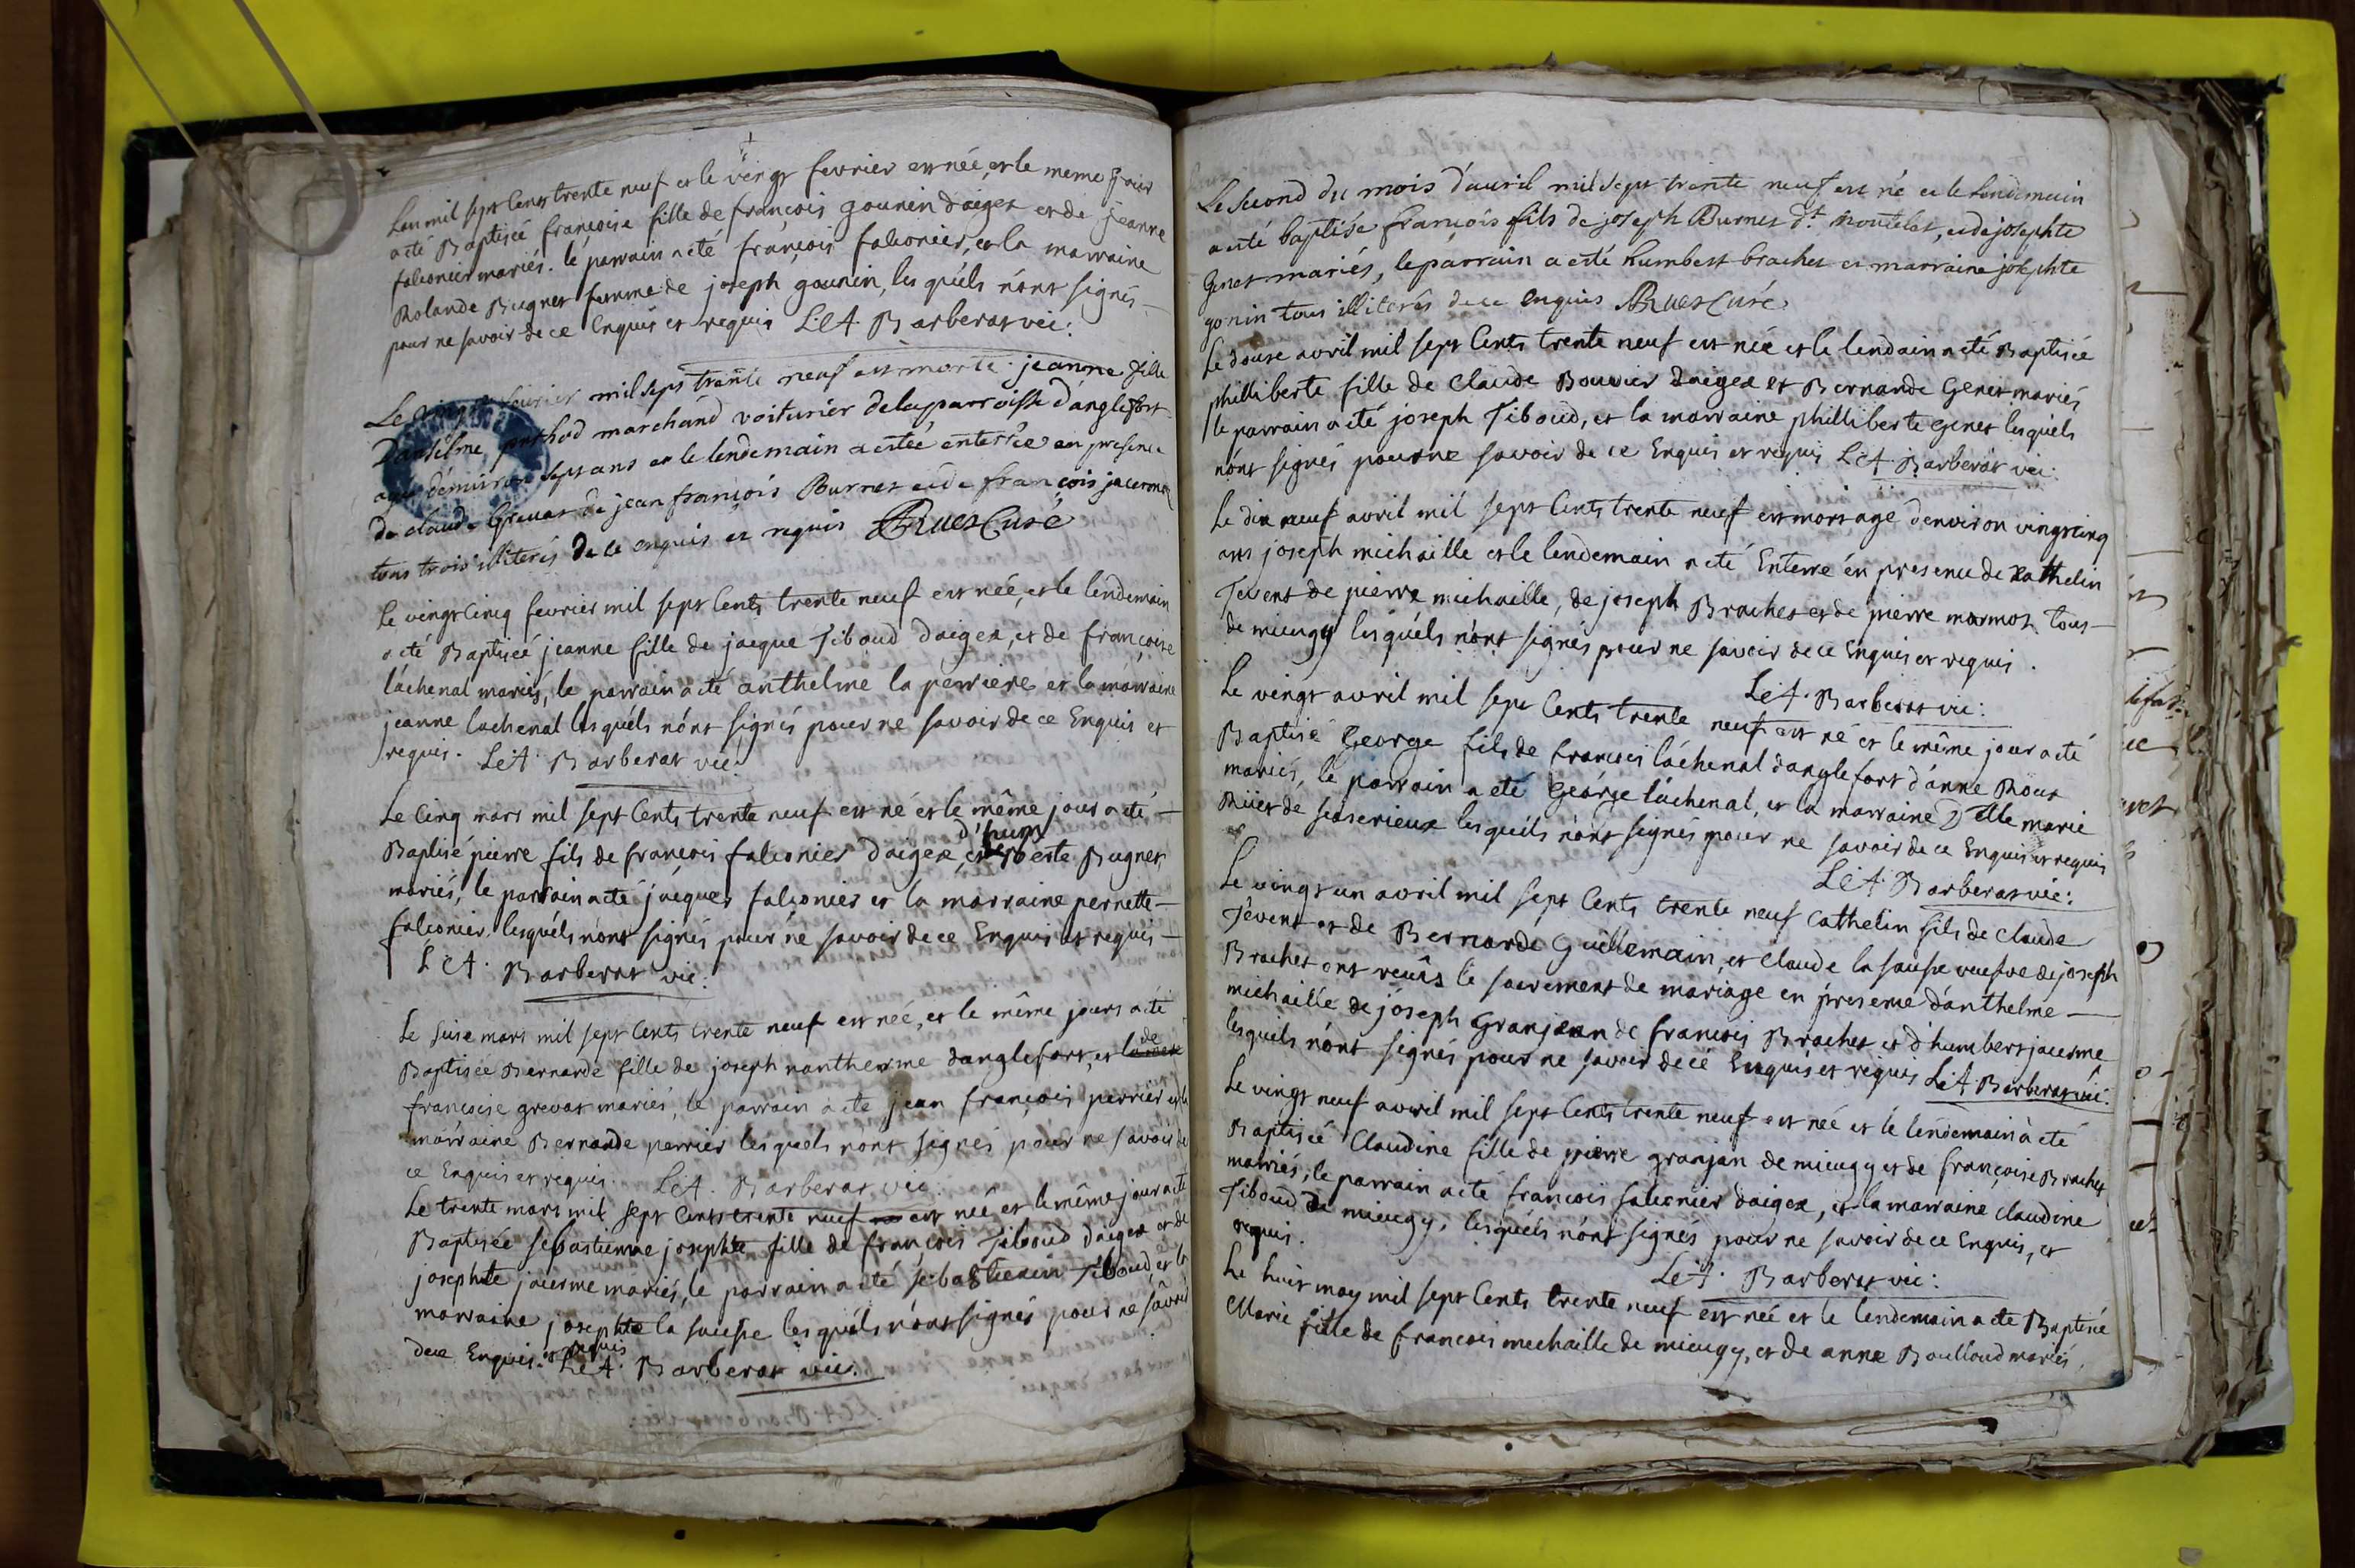 Lan mil sept Cents trente neuf et le vingt fevrier est née, et le meme jour
a eté Baptiseé francoise fille de francois gounin daiges et de jeanne
falconier mariés. le parrain a eté françois falconier, et la marraine
Rolande Bugnet femme de joseph gounin, les quéls nónt signés —
pour ne savoir de ce Enquis et requis L:A. Barberat vic:
Le vingt fevrier mil sept trante neuf est morte jeanne fille
Danthelme marchand voiturier de la parroisse d'anglefort
agée denviron sept ans et le lendemain a estée enterrée en presence
de claude Grevat de jean françois Burnet et de françois jacerme
tous trois illiterés de ce enquis et requis Ruet Curé
Le vingt Cinq fevrier mil sept Cents trente neuf est née, et le lendemain
a eté Baptiseé jeanne fille de jacque Tiboud daigea, et de françoise
láchenal mariés, le parrain a eté anthelme la perriere et la marraine
jeanne lachenal lesquéls nónt signés pour ne savoir de ce Enquis et
requis. L:A. Barberat vic:
Le Cinq mars mil sept Cents trente neuf est né et le même jour a eté —
Baptisé pierre fils de francois falconier daigea, et d'humberte Bugnet
mariés, le parrain a eté jacques falconier et la marraine pernette —
falconier lesquéls nónt signés pour ne savoir de ce Enquis et requis —
L:A. Barberat vic:
Le seise mars mil sept Cents trente neuf est née, et le même jours a eté
Baptisée Bernarde fille de joseph nantherme danglefort, et de
francoise grevat mariés, le parrain a eté jean françois perrier et la
marraine Bernarde perrier lesquels nont signés pour ne savoir de
ce Enquis et requis. L:A. Barberat vic:
Le trente mars mil sept Cents trente neuf est née et le même jour a eté
Baptisée sebastienne josephte fille de françois Tiboud daigea et de
josephte jacerme mariés, le parrain a eté sebastienn Tiboud, et la
marraine josephte la sausse lesquéls nónt signés pour ne savoir
de ce Enquis. et requis L:A. Barberat vic:
Le second du mois d'avril mil sept trante neuf est né et le lendemain
a esté baptisé françois fils de joseph Burnet dt moutelet, et de josephte
Genet mariés, le parrain a esté humbert brachet et marraine josephte
gonin tous illiterés de ce enquis Ruet Curé
Le douse avril mil sept Cents trente neuf est née et le lendain a eté Baptisée
philliberte fille de Claude Bouvier daigea et Bernande Genet mariés
le parrain a eté joseph Tiboud, et la marraine philliberte genet lesquéls
nónt signés pour ne savoir de ce Enquis et requis L:A. Barberat vic:
Le dix neuf avril mil sept Cents trente neuf est mort agé denviron vingt Cinq
ans joseph michaille et le lendemain a eté Enterré én presence de Kathelin
Tevent de pierre michaille, de joseph Brachet et de pierre marmot tous —
de mieugy lesquéls nónt signés pour ne savoir de ce Enquis et requis.
L:A. Barberat vic:
Le vingt avril mil sept Cents trente neuf est né et le même jour a eté
Baptisé George fils de francois láchenal danglefort d'anne Roux
mariés, le parrain a eté George láchenal, et la marraine Delle marie
Rüet de seiserieux lesquéls nónt signés pour ne savoir de ce Enquis et requis
L:A. Barberat vic:
Le vingt un avril mil sept Cents trente neuf Cathelin fils de Claude
Tévent et de Bernarde Guillemain, et Claude la sausse veufve de joseph
Brachet ont recûs le sacrement de mariage en presence d'anthelme —
michaille de joseph Granjean de francois Brachet et d'humbert jacerme
lesquéls nónt signés pour ne savoir de cé Enquis et requis L:A. Barberat vic:
Le vingt neuf avril mil sept Cents trente neuf est née et le lendemain à eté
Baptiséé Claudine fille de pierre granjan de mieugy et de françoise Brachet
mariés, le parrain a eté francois falconier daigea, et la marraine Claudine
Tiboud de mieugy, lesquéls nónt signés pour ne savoir de ce Enquis, et
requis.
L:A. Barberat vic:
Le huit may mil sept Cents trente neuf est née et le lendemain a eté Baptisée
Marie fille de francois mechaille de mieugy, et de anne Boulloud mariés,